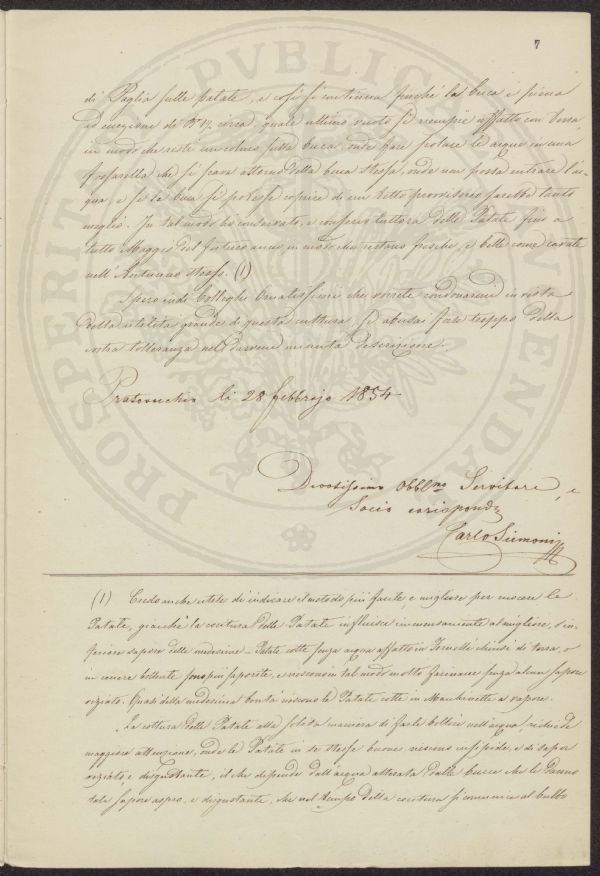 7
di Paglia sulle patate, e così si continua finché la buca è piena
ad eccezione di Br. ½ circa, quale ultimo vuoto si riempie affatto con terra,
in modo che resti un colmo sulla buca, onde fare scolare le acque in una
fossarella che si scava attorno della buca stessa, onde non possa entrare l'ac-
qua, e se la buca si potesse coprire di un tetto provvisorio sarebbe tanto
meglio. In tal modo ho conservato, e conservo tuttora delle Patate fino a
tutto Maggio del futuro anno in modo che restano fresche, e belle come cavate
nell'Autunno stesso. (1)
Spero indi Colleghi Ornatissimi che vorrete condonarmi in vista
della utilità grande di questa cultura, se abusai forse troppo della
vostra tolleranza nel darvene minuta descrizione.
Pratovecchio li 28 febbrajo 1854
Devotissimo Obblmo Servitore, e
Socio corrispond
Carlo Siemoni
(1) Credo anche utile di indicare il metodo più facile, e migliore per cuocere le
Patate, giacché la cocitura delle Patate influisce immensamente al migliore, o in-
feriore sapore delle medesime. Patate cotte senza acqua affatto in Fornelli chiusi di terra, o
in cenere bollente sono più saporite, e riescono in tal modo molto farinacee senza alcun sapore
viziato. Quasi della medesima bontà riescono le Patate cotte in Macchinette a vapore.
La cottura delle Patate alla solita maniera di farle bollire nell'acqua, richiede
maggiore attenzione, onde le Patate in se stesse buone riescono insipide, e di sapor
viziato, e disgustante, il che dipende dall'acqua alterata dalle bucce che le danno
tale sapore aspro, e disgustante, che nel tempo della cocitura si comunica al bulbo
PROSPERITATI PVBLICAE AVGENDAE